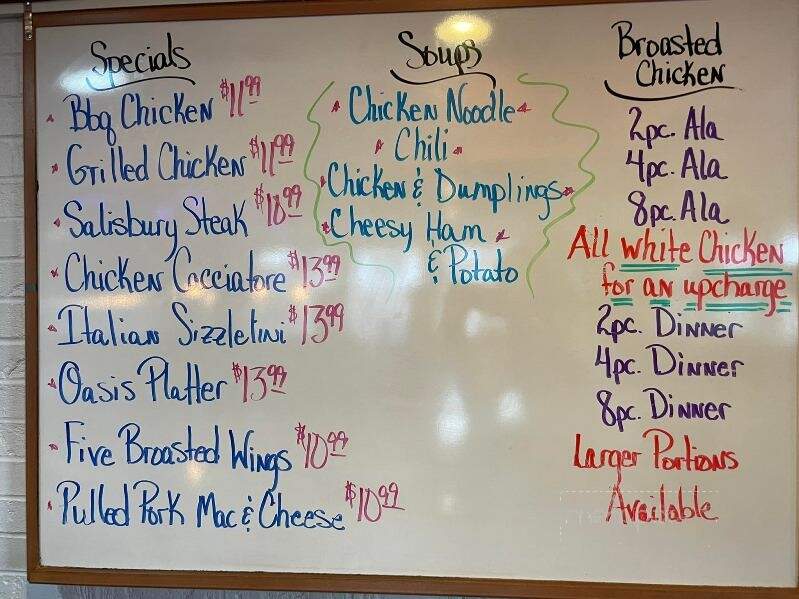 Specials
Bbq Chicken $11.99
Grilled Chicken $11.99
Salisbury Steak $10.99
Chicken Cacciatore $13.99
Italian Sizzletini $13.99
Oasis Platter $13.99
Five Broasted Wings $10.99
Pulled Pork Mac & Cheese $10.99
Soups
Chicken Noodle
Chili
Chicken & Dumplings
Cheesy Ham
& Potato
Broasted
Chicken
2pc. Ala
4pc. Ala
8pc. Ala
All white Chicken
for an upcharge
2pc. Dinner
4pc. Dinner
8pc. Dinner
Larger Portions
Available